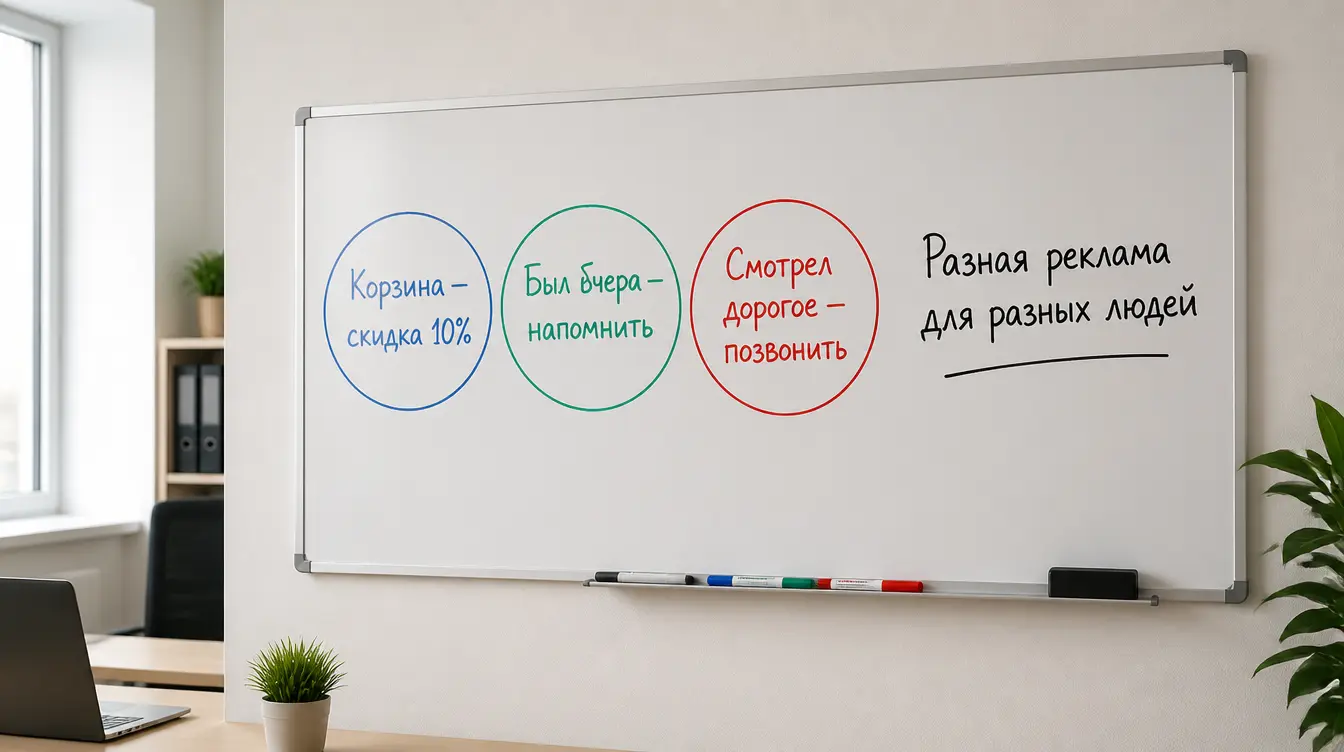 Корзина –
скидка 10%
Был вчера –
напомнить
Смотрел
дорогое –
позвонить
Разная реклама
для разных людей